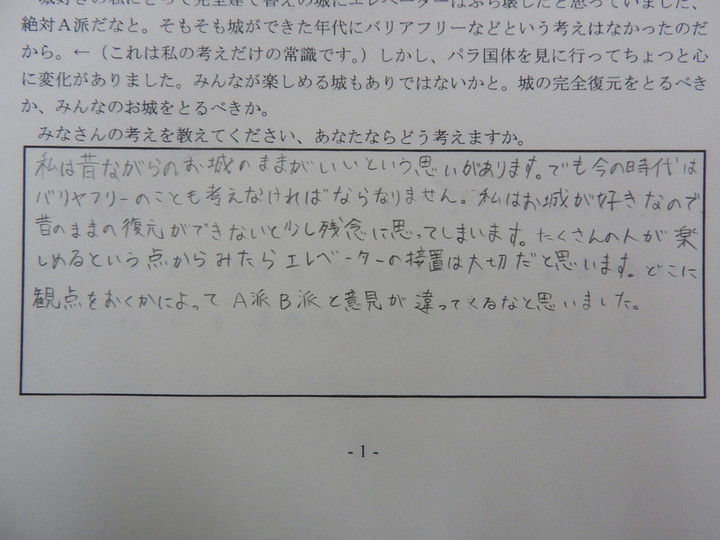 城好きの私にとって完全建て替えの城にエレベーターはぶち壊しだと思っていました、
絶対A派だなと。そもそも城ができた年代にバリアフリーなどという考えはなかったのだ
から。←（これは私の考えだけの常識です。）しかし、パラ国体を見に行ってちょっと心
に変化がありました。みんなが楽しめる城もありではないかと。城の完全復元をとるべき
か、みんなのお城をとるべきか。
みなさんの考えを教えてください、あなたならどう考えますか。
私は昔ながらのお城のままがいいという思いがあります。でも今の時代は
バリヤフリーのことも考えなければならなりません。私はお城が好きなので
昔のままの復元ができないと少し残念に思ってしまいます。たくさんの人が楽
しめるという点からみたらエレベーターの接置は大切だと思います。どこに
観点をおくかによってA派B派と意見が違ってくるなと思いました。
- 1 -